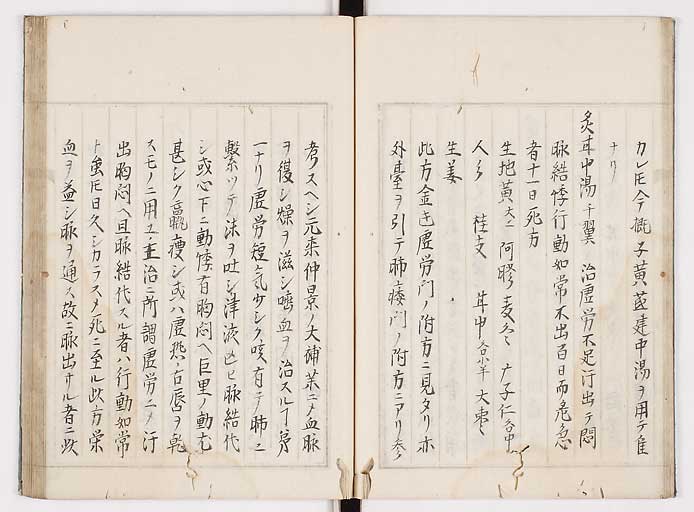 カレ𪜈今概子黄芪建中湯ヲ用テ佳
ナリ
炙甘中湯 千翼 治虚労不足汗出テ悶
脉結悸行動如常不出百日而危急
者十一日死方
生地黄大二 阿膠 麦〻 广子仁各中
人〻 桂支 甘中各小半 大枣〻
生姜
此方金匱虚労門ノ附方ニ見タリ亦
外臺ヲ引テ肺痿門ノ附方ニアリ参
考スヘシ元来仲景ノ大補薬ニメ血脉
ヲ復シ燥ヲ滋シ唾血ヲ治スルヿ第
一ナリ虚労短気少シク咳有テ肺ニ
繋ツテ沫ヲ吐シ津液 ヒ脉結代
シ或心下ニ動悸有胸悶ヘ巨里ノ動尤
甚シク羸瘦シ或ハ虚熱舌唇ヲ乾
スモノニ用ユ 治ニ所謂虚労ニメ汗
出胸悶ヘ且脉結代スル者ハ行動如常
ト雖𪜈日久シカラスメ死ニ至ル此方栄
血ヲ益シ脉ヲ通ス故ニ脉出サル者ニ此